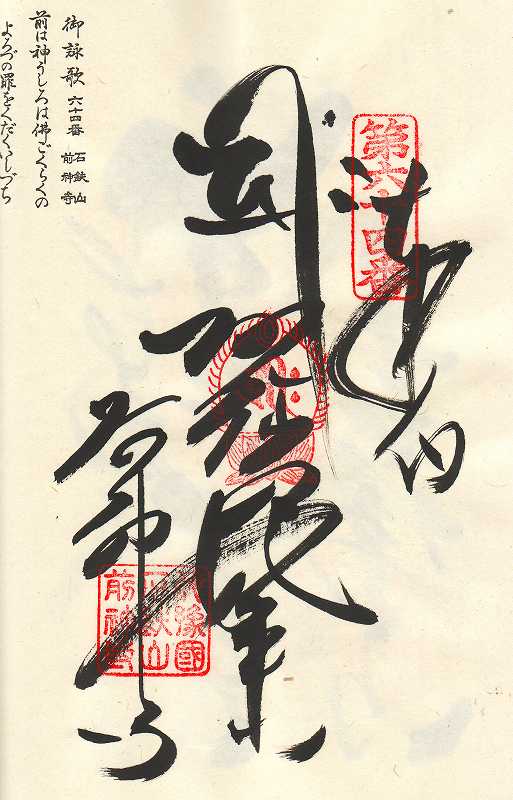 第六十四番
阿弥陀如来
前神寺
豫國
石鈇山
前神寺
御詠歌 六十四番 石鈇山 前神寺
前は神うしろは佛ごくらくの
よろづの罪をくだくいしづち